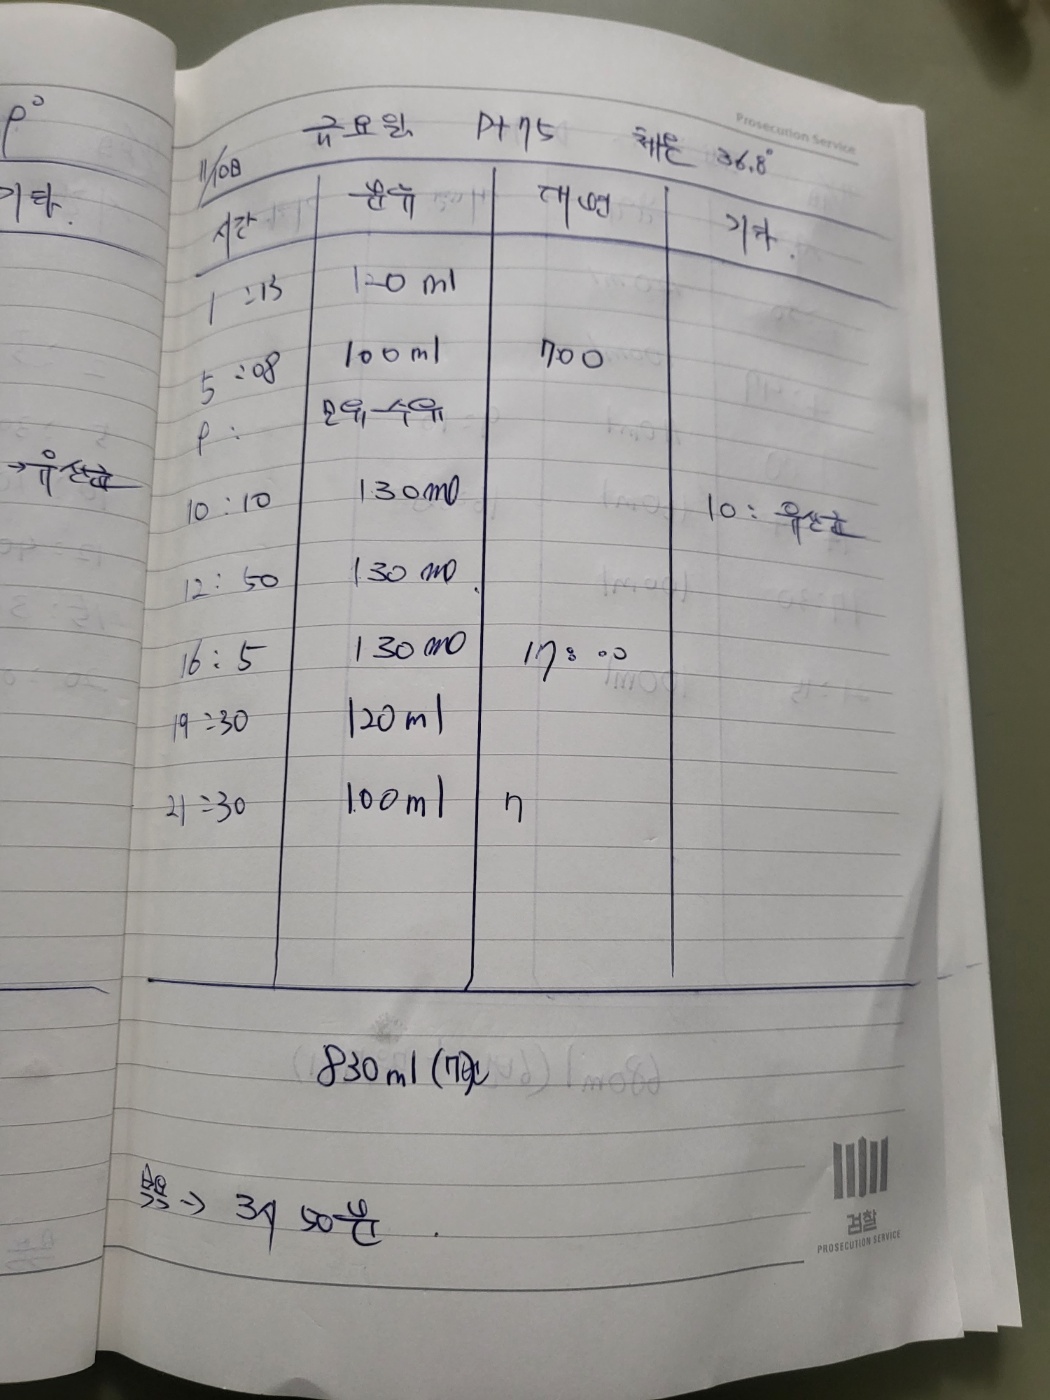 Prosecution Service
11/08 금요일 D+75 체온 36.8°
시간 분유 대변 기타.
기타.
1:13 120ml
5:08 100ml 700
8: 모유수유
→유산균
10:10 130ml 10: 유산균
12:50 130ml
16:5 130ml 17:00
19:30 120ml
21:30 100ml 7
830ml (7회)
→ 3시 50분.
검찰
PROSECUTION SERVICE